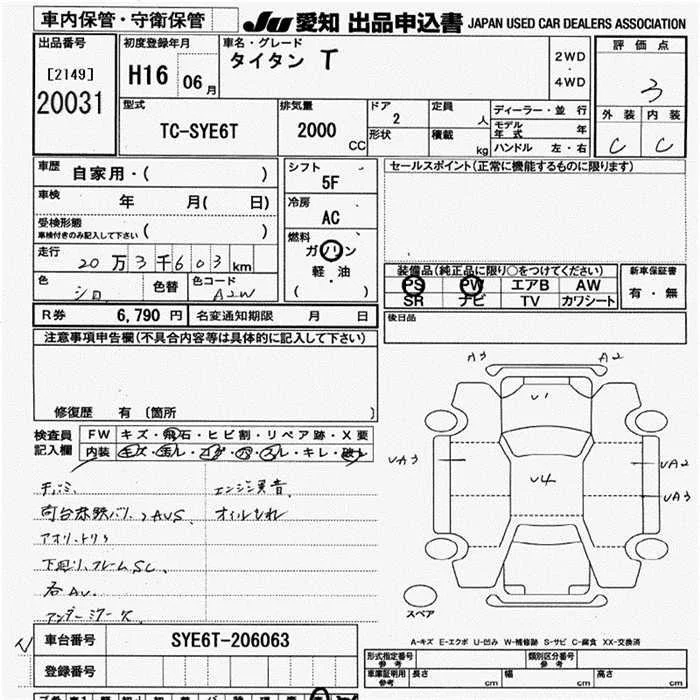 車内保管・守衛保管
JU 愛知 出品申込書 JAPAN USED CAR DEALERS ASSOCIATION
出品番号
[2149]
20031
初度登録年月
H16 06月
車名・グレード
タイタン T
2WD
・
4WD
評価点
3
外装 内装
C C
型式
TC-SYE6T
排気量
2000
CC
ドア
2
形状
定員
人
積載
kg
ディーラー・並行
モデル年式 年
ハンドル 左・右
車歴
自家用・( )
車検
年 月( 日)
受検形態
車検付きのみ記入して下さい ( )
走行
20万3千603km
色
シロ
色替
色コード
A2W
シフト
5F
冷房
AC
燃料
ガソリン
軽・油
( )
セールスポイント(正常に機能するものに限ります)
装備品(純正品に限り○をつけてください)
PS PW エアB AW
SR ナビ TV カワシート
新車保証書
有・無
R券 6,790 円 名変通知期限 月 日
後日品
注意事項申告欄(不具合内容等は具体的に記入して下さい)
修復歴 有 〔箇所 〕
検査員
記入欄
FW キズ・飛石・ヒビ割・リペア跡・X要
内装 キズ・汚れ・コゲ・穴・スレ・キレ・破れ
エンジン異音
オイルもれ
アオリ
下廻り、フレームSC
各AU
アンダーミラー欠
A3 A2
U1
UA3
U4
UA2
UA3
スペア
A-キズ E-エクボ U-凹み W-補修跡 S-サビ C-腐食 XX-交換済
車台番号 SYE6T-206063
登録番号
形式指定番号
参考
類別区分番号
参考
車庫証明用
参考
長さ 幅 高さ